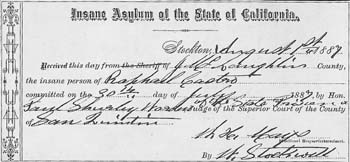 Insane Asylum of the State of California.
Stockton, August 1st 1887
Received this day from the Sheriff of J. McLaughlin County,
the insane person of Raphael Castro
committed on the 30th day of July 1887 by Hon.
Paul Shirley Warden of the State Prison a Judge of the Superior Court of the County
of San Quintin
W. T. Mays
Medical Superintendent.
By W. Stockwell